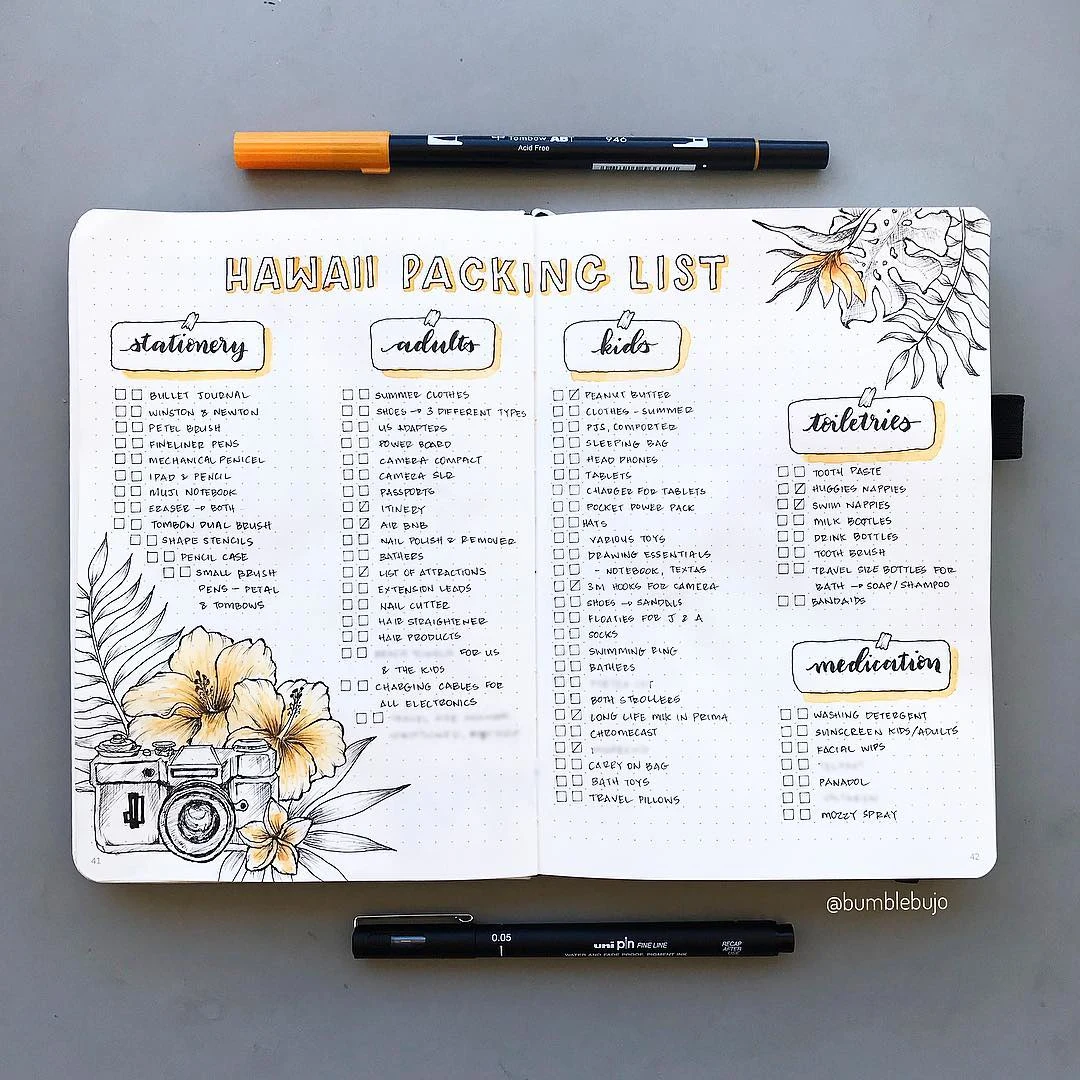 Tombow ABT 946
Acid Free
HAWAII PACKING LIST
stationery
BULLET JOURNAL
WINSTON & NEWTON
PETEL BRUSH
FINELINER PENS
MECHANICAL PENICEL
IPAD & PENCIL
MUJI NOTEBOOK
ERASER → BOTH
TOMBON DUAL BRUSH
SHAPE STENCILS
PENCIL CASE
SMALL BRUSH
PENS - PETAL
& TOMBOWS
41
adults
SUMMER CLOTHES
SHOES → 3 DIFFERENT TYPES
US ADAPTERS
POWER BOARD
CAMERA COMPACT
CAMERA SLR
PASSPORTS
ITINERY
AIR BNB
NAIL POLISH & REMOVER
BATHERS
LIST OF ATTRACTIONS
EXTENSION LEADS
NAIL CUTTER
HAIR STRAIGHTENER
HAIR PRODUCTS
FOR US
& THE KIDS
CHARGING CABLES FOR
ALL ELECTRONICS
kids
PEANUT BUTTER
CLOTHES - SUMMER
PJS, COMFORTER
SLEEPING BAG
HEAD PHONES
TABLETS
CHARGER FOR TABLETS
POCKET POWER PACK
HATS
VARIOUS TOYS
DRAWING ESSENTIALS
- NOTEBOOK, TEXTAS
3M HOOKS FOR CAMERA
SHOES → SANDALS
FLOATIES FOR J & A
SOCKS
SWIMMING RING
BATHERS
BOTH STROLLERS
LONG LIFE MILK IN PRIMA
CHROMECAST
CAREY ON BAG
BATH TOYS
TRAVEL PILLOWS
toiletries
TOOTH PASTE
HUGGIES NAPPIES
SWIM NAPPIES
MILK BOTTLES
DRINK BOTTLES
TOOTH BRUSH
TRAVEL SIZE BOTTLES FOR
BATH → SOAP/SHAMPOO
BANDAIDS
medication
WASHING DETERGENT
SUNSCREEN KIDS/ADULTS
FACIAL WIPS
PANADOL
MOZZY SPRAY
42
@bumblebujo
0.05
uni pin FINE LINE
WATER AND FADE PROOF, PIGMENT INK
RECAP
AFTER
USE